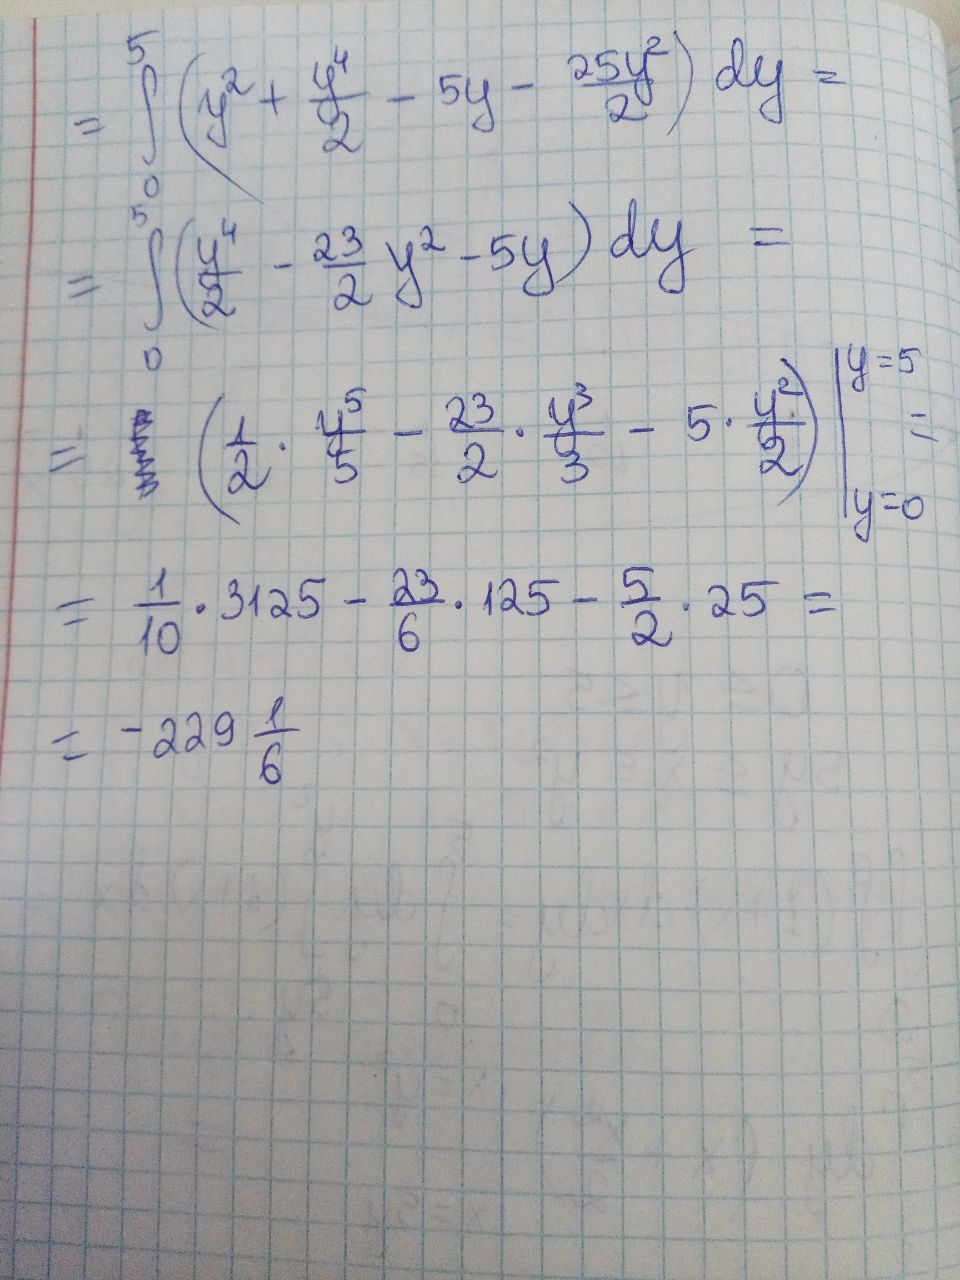 = ∫₀⁵ (y² + y⁴/2 - 5y - 25y²/2) dy =
= ∫₀⁵ (y⁴/2 - 23/2 y² - 5y) dy =
= (1/2 · y⁵/5 - 23/2 · y³/3 - 5 · y²/2) | y=5 y=0 =
= 1/10 · 3125 - 23/6 · 125 - 5/2 · 25 =
= -229 1/6